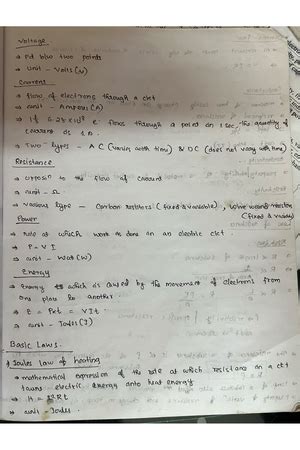 Voltage
→ Pd b/w two points
→ unit - Volts (V)
Current
→ flow of electrons through a ckt
→ unit - Amperes (A)
→ If 6.28x10¹⁸ e⁻ flows through a point in 1 sec, the quantity of
current is 1 A.
→ Two types - AC (varies with time) & DC (does not vary with time)
Resistance
→ oppose to the flow of current
→ unit - Ω
→ various type - Carbon resistors (fixed & variable), wire wound resistors
(fixed & variable)
Power
→ rate at which work is done in an electric ckt.
→ P = V I
→ unit - Watt (W)
Energy
→ Energy which is caused by the movement of electrons from
one place to another
→ E = Pxt = VIt
→ unit - Joules (J)
Basic Laws.
Joules law of heating
→ mathematical expression of the rate at which resistance in a ckt
turns electric energy into heat energy
→ H = I²Rt
→ unit - Joules.